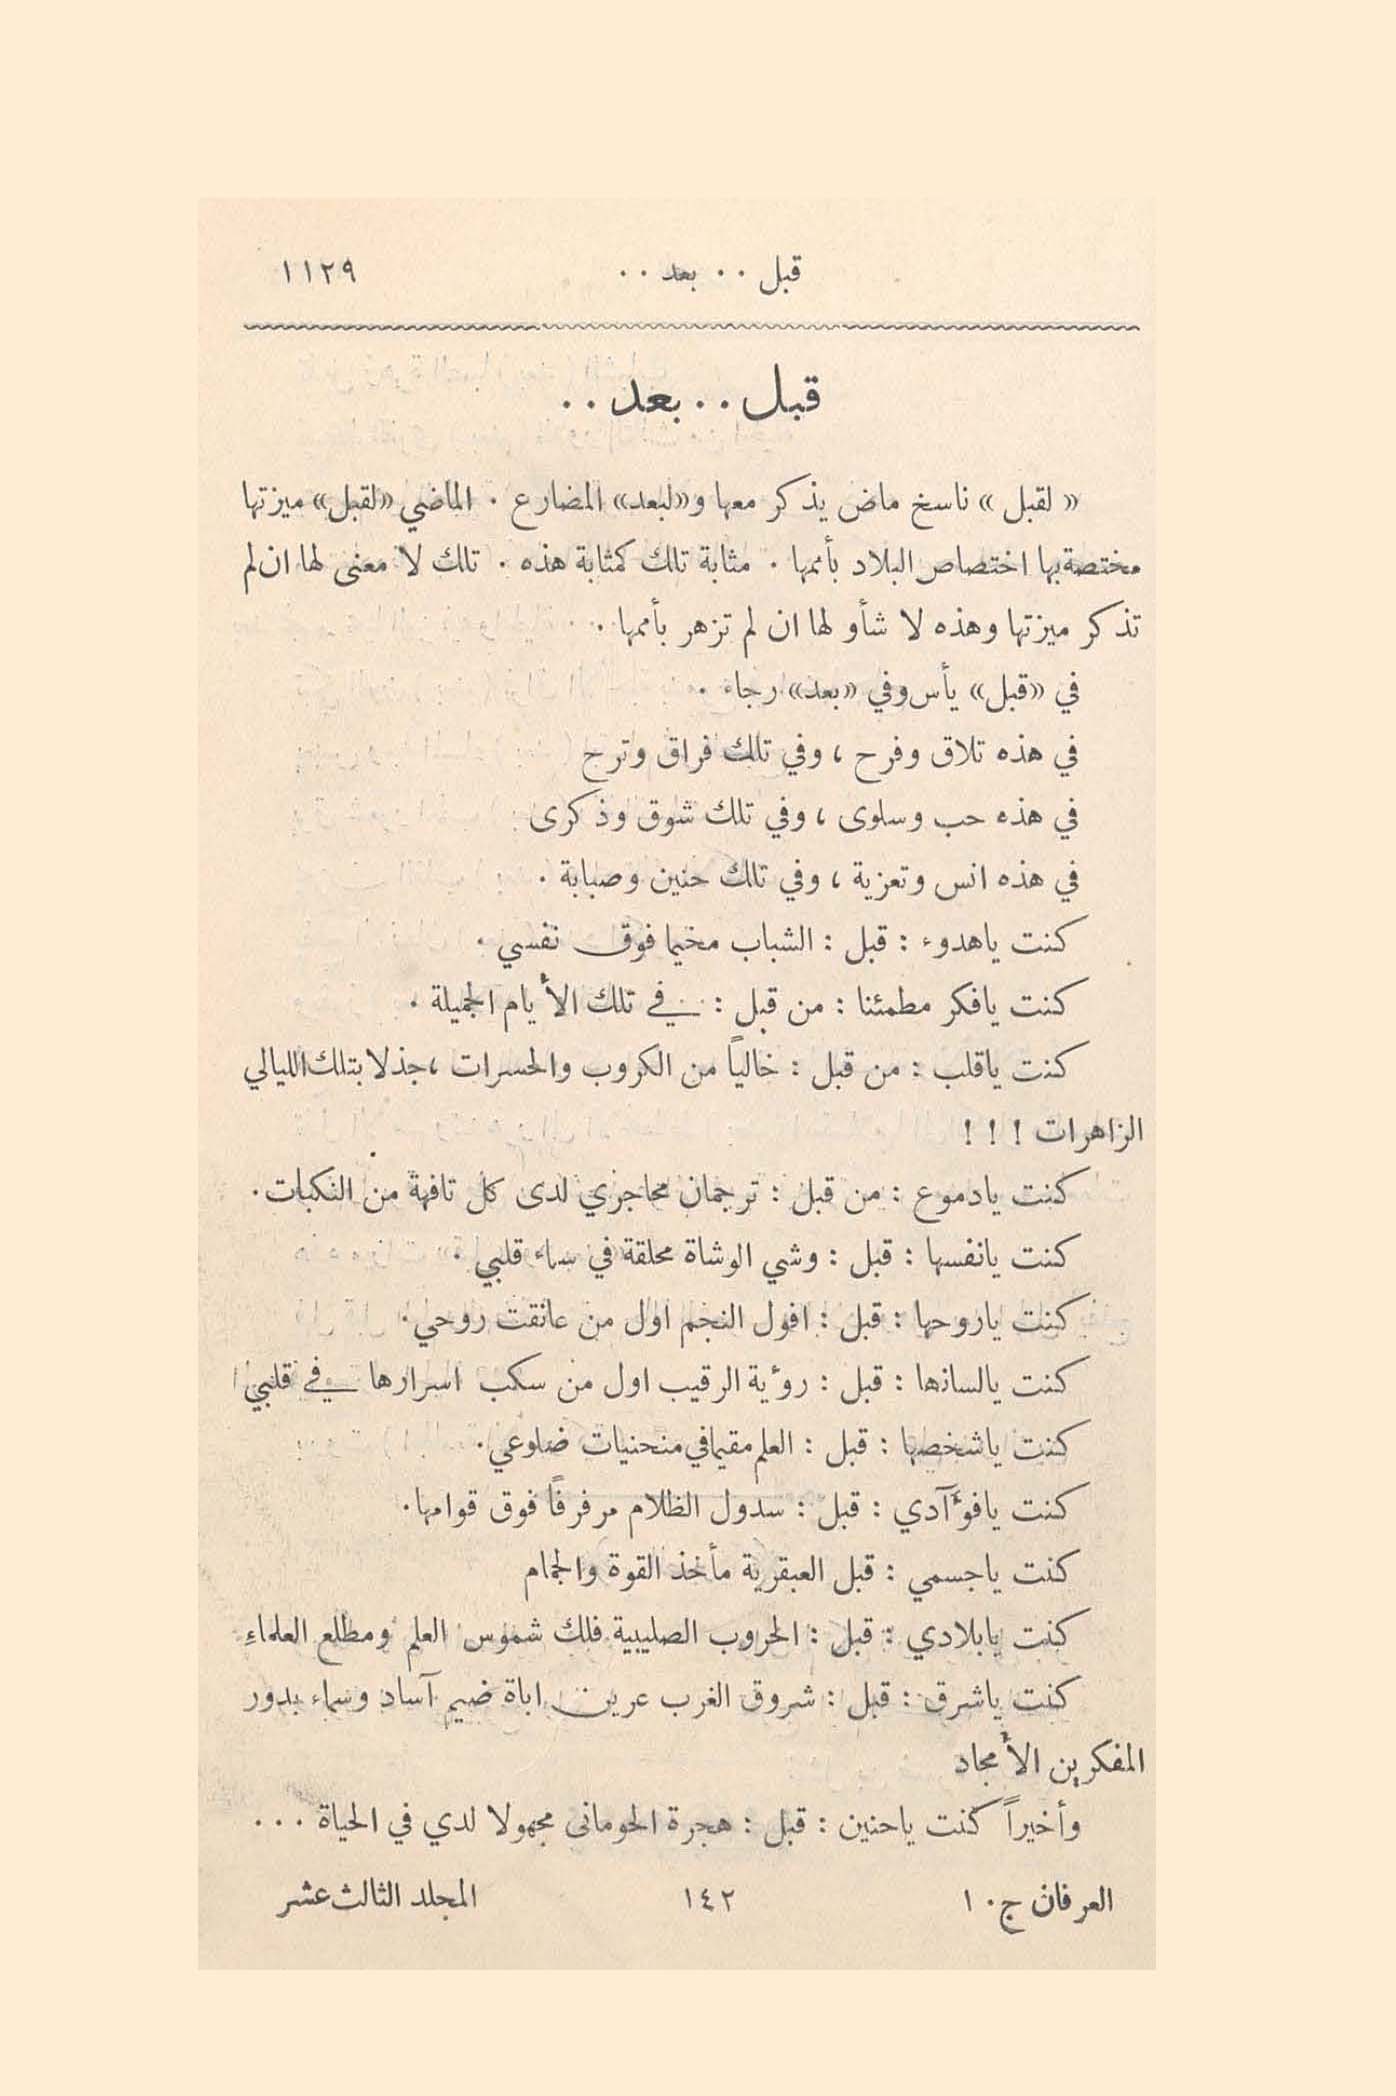 قبل ٠٠ بعد ٠٠
١١٢٩
قبل ٠٠ بعد ٠٠
« لقبل » ناسخ ماض يذكر معها و«لبعد» المضارع ٠ الماضي «لقبل» ميزتها
مختصة بها اختصاص البلاد بأممها ٠ مثابة تلك كمثابة هذه ٠ تلك لا معنى لها ان لم
تذكر ميزتها وهذه لا شأو لها ان لم تزهر بأممها ٠ ٠
في «قبل» يأس وفي «بعد» رجاء ٠
في هذه تلاق وفرح ، وفي تلك فراق وترح
في هذه حب وسلوى ، وفي تلك شوق وذكرى
في هذه انس وتعزية ، وفي تلك حنين وصبابة ٠
كنت ياهدوء : قبل : الشباب مخيما فوق نفسي ٠
كنت يافكر مطمئنا : من قبل : في تلك الأيام الجميلة ٠
كنت ياقلب : من قبل : خالياً من الكروب والحسرات ، جذلا بتلك الليالي
الزاهرات ! ! !
كنت يادموع : من قبل : ترجمان محاجزي لدى كل تافهة من النكبات ٠
كنت يانفسها : قبل : وشي الوشاة محلقة في سماء قلبي ٠
كنت ياروحها : قبل : افول النجم اول من عانقت روحي ٠
كنت يالسانها : قبل : رؤية الرقيب اول من سكب اسرارها في قلبي
كنت ياشخصها : قبل : العلم مقيما في منحنيات ضلوعي ٠
كنت يافؤآدي : قبل : سدول الظلام مرفرفاً فوق قوامها ٠
كنت ياجسمي : قبل العبقرية مأخذ القوة والجمام
كنت يابلادي : قبل : الحروب الصليبية فلك شموس العلم ومطلع العلماء
كنت ياشرق : قبل : شروق الغرب عرين اباة ضيم آساد وسماء بدور
المفكرين الأمجاد
وأخيراً كنت ياحنين : قبل : هجرة الحوماني مجهولا لدي في الحياة ٠٠٠
العرفان ج ١٠
١٤٢
المجلد الثالث عشر